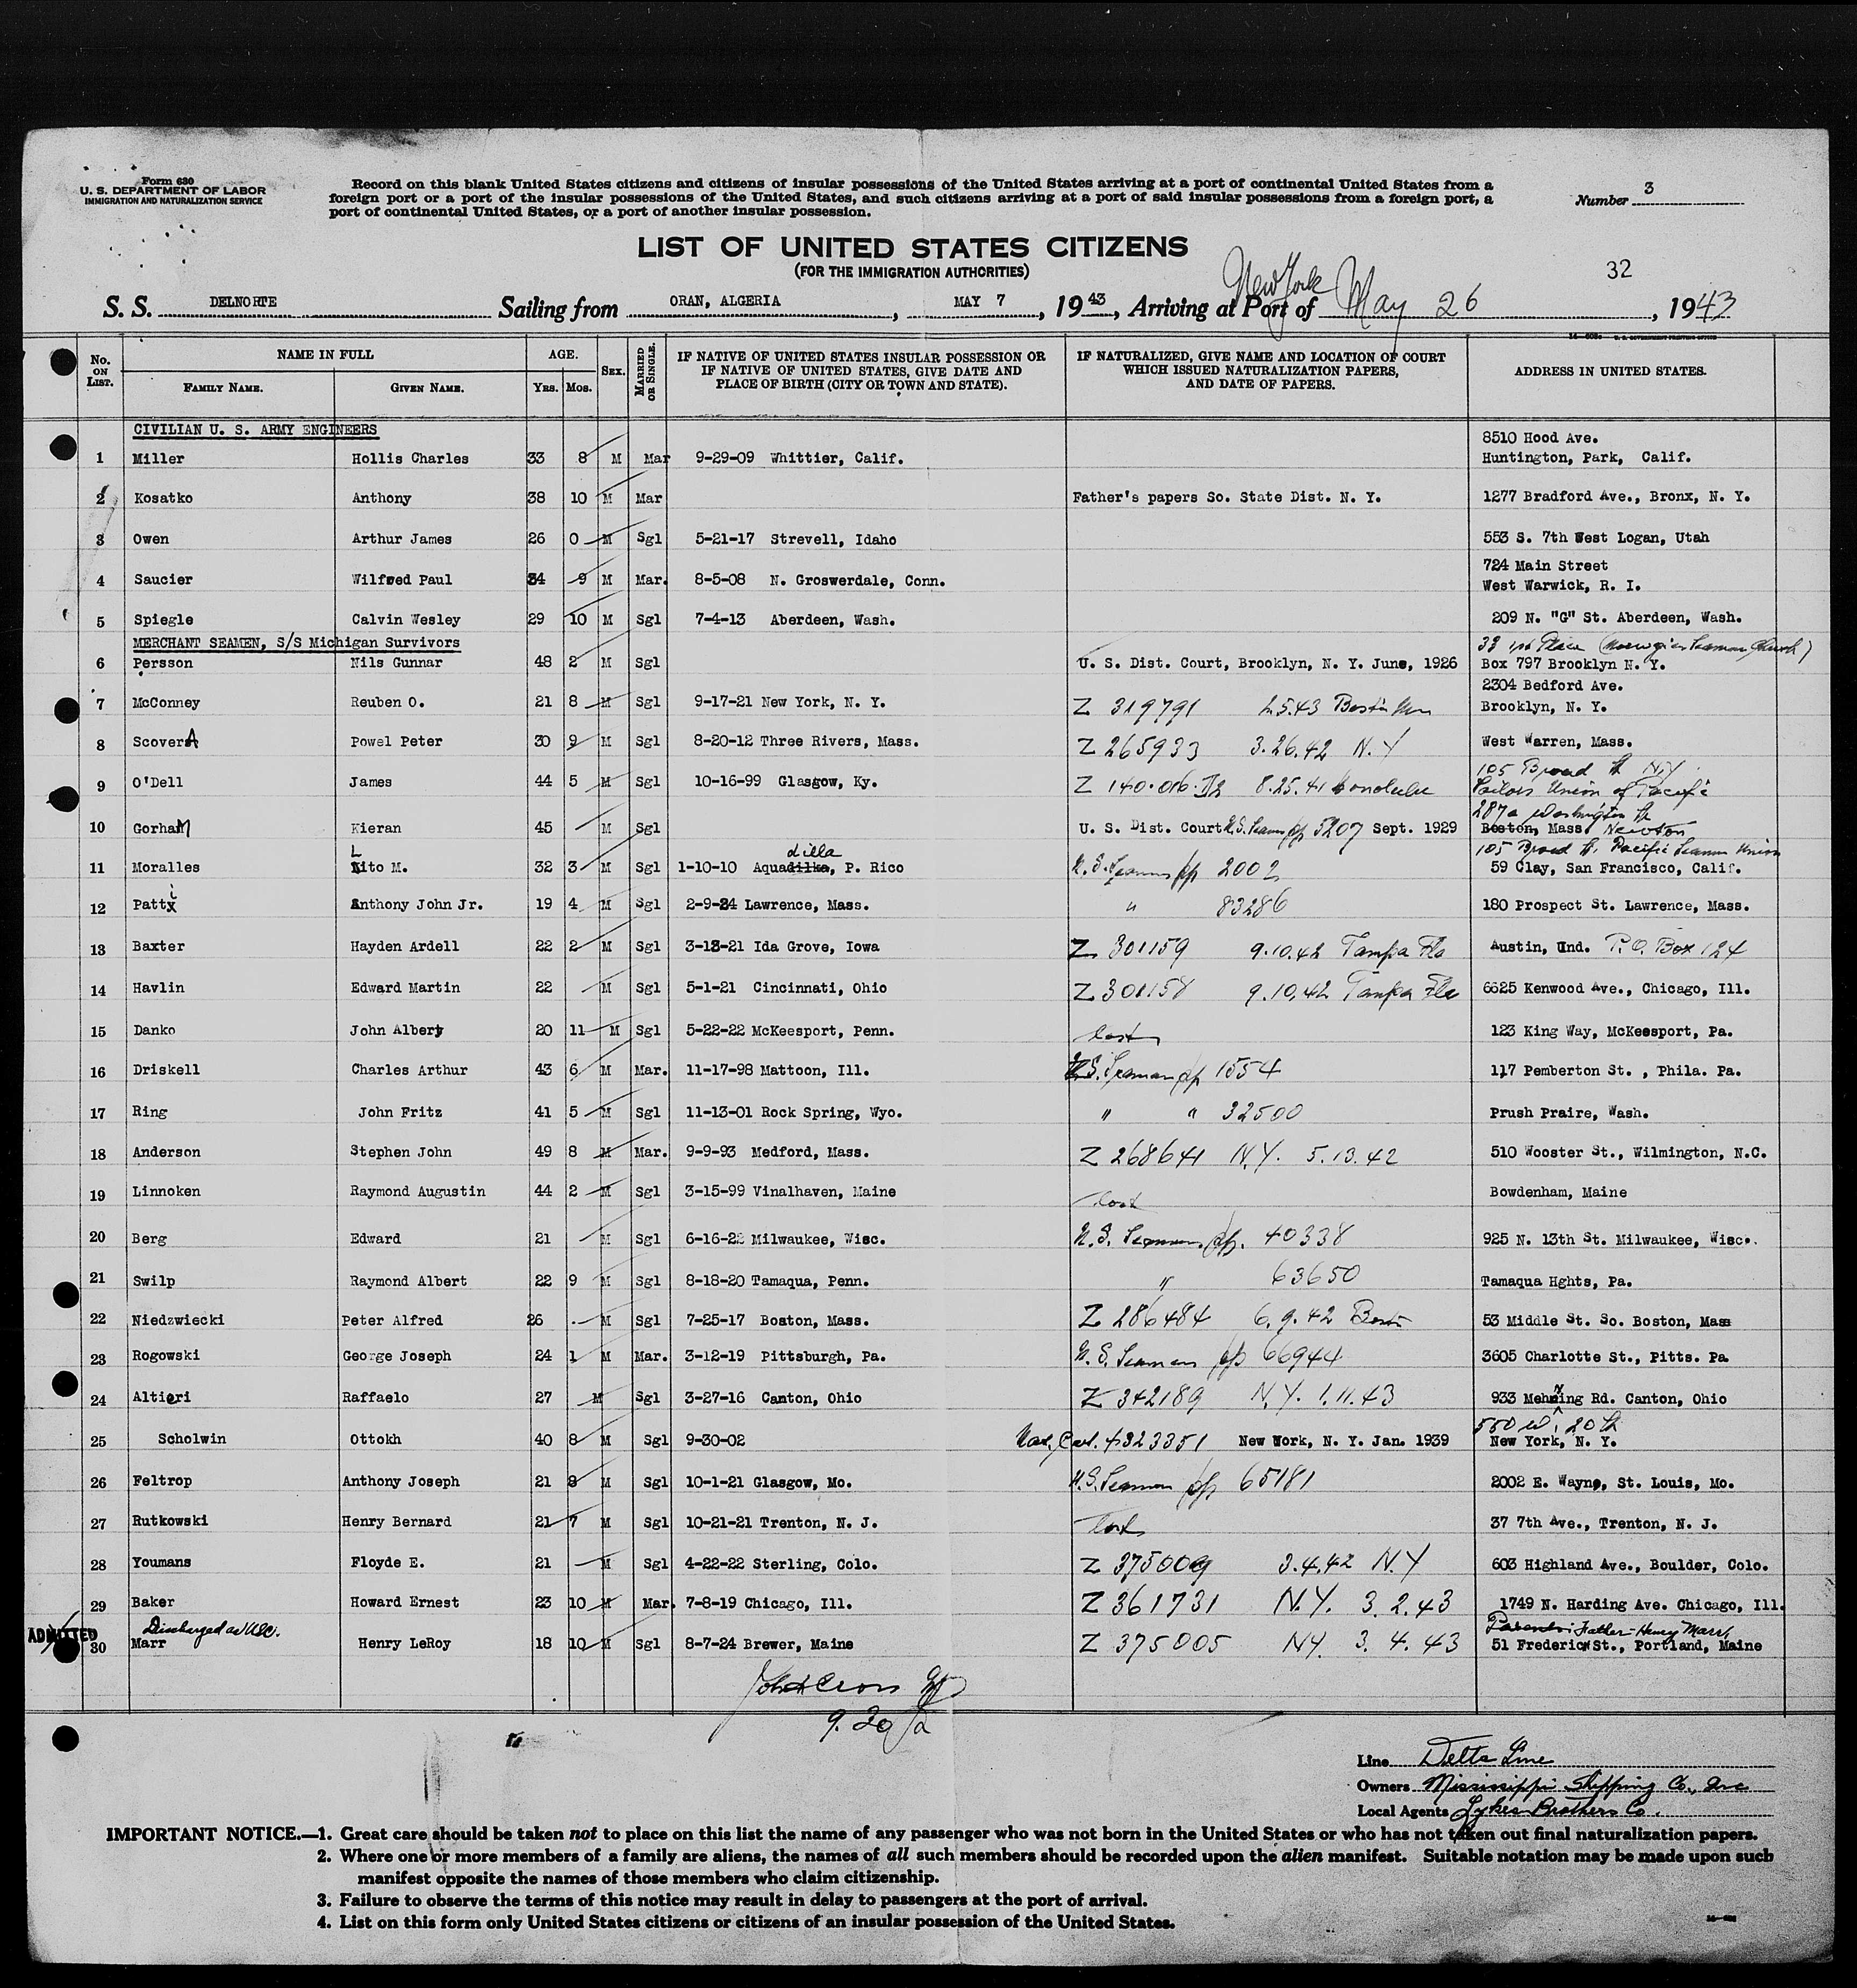 Form 630
U. S. DEPARTMENT OF LABOR
IMMIGRATION AND NATURALIZATION SERVICE
Record on this blank United States citizens and citizens of insular possessions of the United States arriving at a port of continental United States from a
foreign port or a port of the insular possessions of the United States, and such citizens arriving at a port of said insular possessions from a foreign port, a
port of continental United States, or a port of another insular possession.
Number 3
LIST OF UNITED STATES CITIZENS
(FOR THE IMMIGRATION AUTHORITIES)
32
S. S. DELNORTE Sailing from ORAN, ALGERIA, MAY 7, 1943, Arriving at Port of New York May 26, 1943
No. ON LIST. NAME IN FULL FAMILY NAME. GIVEN NAME. AGE. YRS. MOS. SEX. MARRIED OR SINGLE. IF NATIVE OF UNITED STATES INSULAR POSSESSION OR IF NATIVE OF UNITED STATES, GIVE DATE AND PLACE OF BIRTH (CITY OR TOWN AND STATE). IF NATURALIZED, GIVE NAME AND LOCATION OF COURT WHICH ISSUED NATURALIZATION PAPERS, AND DATE OF PAPERS. ADDRESS IN UNITED STATES.
CIVILIAN U. S. ARMY ENGINEERS
1 Miller Hollis Charles 33 8 M Mar 9-29-09 Whittier, Calif. 8510 Hood Ave. Huntington, Park, Calif.
2 Kosatko Anthony 38 10 M Mar Father's papers So. State Dist. N. Y. 1277 Bradford Ave., Bronx, N. Y.
3 Owen Arthur James 26 0 M Sgl 5-21-17 Strevell, Idaho 553 S. 7th West Logan, Utah
4 Saucier Wilfred Paul 34 9 M Mar. 8-5-08 N. Groswerdale, Conn. 724 Main Street West Warwick, R. I.
5 Spiegle Calvin Wesley 29 10 M Sgl 7-4-13 Aberdeen, Wash. 209 N. "G" St. Aberdeen, Wash.
MERCHANT SEAMEN, S/S Michigan Survivors
6 Persson Nils Gunnar 48 2 M Sgl U. S. Dist. Court, Brooklyn, N. Y. June, 1926 33 1st Place (Norwegian Seaman Church) Box 797 Brooklyn N. Y.
7 McConney Reuben O. 21 8 M Sgl 9-17-21 New York, N. Y. Z 319791 2.5.43 Boston 2304 Bedford Ave. Brooklyn, N. Y.
8 ScoverA Powel Peter 30 9 M Sgl 8-20-12 Three Rivers, Mass. Z 265933 3.26.42 N.Y West Warren, Mass.
9 O'Dell James 44 5 M Sgl 10-16-99 Glasgow, Ky. Z 140.016 8.25.41 Honolulu 105 Broad St N.Y. Sailors Union of Pacific
10 GorhaM Kieran 45 M Sgl U. S. Dist. Court U.S. Seamn pp 5207 Sept. 1929 287a Washington St Boston, Mass Newton
11 Moralles Lito M. 32 3 M Sgl 1-10-10 Aquadilla, P. Rico U.S. Seamns pp 2002 105 Broad St. Pacific Seamn Union 59 Clay, San Francisco, Calif.
12 Patti Anthony John Jr. 19 4 M Sgl 2-9-24 Lawrence, Mass. " 83286 180 Prospect St. Lawrence, Mass.
13 Baxter Hayden Ardell 22 2 M Sgl 3-13-21 Ida Grove, Iowa Z 301159 9.10.42 Tampa Fla Austin, Ind. P.O. Box 124
14 Havlin Edward Martin 22 M Sgl 5-1-21 Cincinnati, Ohio Z 301158 9.10.42 Tampa Fla 6625 Kenwood Ave., Chicago, Ill.
15 Danko John Albert 20 11 M Sgl 5-22-22 McKeesport, Penn. lost 123 King Way, McKeesport, Pa.
16 Driskell Charles Arthur 43 6 M Mar. 11-17-98 Mattoon, Ill. U.S. Seaman pp 1554 117 Pemberton St. , Phila. Pa.
17 Ring John Fritz 41 5 M Sgl 11-13-01 Rock Spring, Wyo. " " 32500 Prush Praire, Wash.
18 Anderson Stephen John 49 8 M Mar. 9-9-93 Medford, Mass. Z 268641 N.Y. 5.13.42 510 Wooster St., Wilmington, N.C.
19 Linnoken Raymond Augustin 44 2 M Sgl 3-15-99 Vinalhaven, Maine lost Bowdenham, Maine
20 Berg Edward 21 M Sgl 6-16-22 Milwaukee, Wisc. U.S. Seamans pp. 40338 925 N. 13th St. Milwaukee, Wisc.
21 Swilp Raymond Albert 22 9 M Sgl 8-18-20 Tamaqua, Penn. " 63650 Tamaqua Hghts, Pa.
22 Niedzwiecki Peter Alfred 26 M Sgl 7-25-17 Boston, Mass. Z 286484 6.9.42 Boston 53 Middle St. So. Boston, Mass
23 Rogowski George Joseph 24 1 M Mar. 3-12-19 Pittsburgh, Pa. U.S. Seamens pp 66944 3605 Charlotte St., Pitts. Pa
24 Altieri Raffaelo 27 M Sgl 3-27-16 Canton, Ohio Z 342189 N.Y. 1.11.43 933 Mehning Rd. Canton, Ohio
25 Scholwin Ottokh 40 8 M Sgl 9-30-02 Nat. Cert. 4323351 New York, N. Y. Jan. 1939 550 W. 20 St New York, N. Y.
26 Feltrop Anthony Joseph 21 8 M Sgl 10-1-21 Glasgow, Mo. U.S. Seaman pp 65181 2002 E. Wayne, St. Louis, Mo.
27 Rutkowski Henry Bernard 21 7 M Sgl 10-21-21 Trenton, N. J. lost 37 7th Ave., Trenton, N. J.
28 Youmans Floyde E. 21 M Sgl 4-22-22 Sterling, Colo. Z 375009 3.4.42 N.Y 603 Highland Ave., Boulder, Colo.
29 Baker Howard Ernest 23 10 M Mar. 7-8-19 Chicago, Ill. Z 361731 N.Y. 3.2.43 1749 N. Harding Ave. Chicago, Ill.
ADMITTED Discharged as USC.
30 Marr Henry LeRoy 18 10 M Sgl 8-7-24 Brewer, Maine Z 375005 NY. 3.4.43 Parents: Father-Henry Marr, 51 Frederic St., Portland, Maine
9.30
Line Delta Line
Owners Mississippi Shipping Co., Inc
Local Agents Lykes Brothers Co.
IMPORTANT NOTICE.—1. Great care should be taken not to place on this list the name of any passenger who was not born in the United States or who has not taken out final naturalization papers.
2. Where one or more members of a family are aliens, the names of all such members should be recorded upon the alien manifest. Suitable notation may be made upon such
manifest opposite the names of those members who claim citizenship.
3. Failure to observe the terms of this notice may result in delay to passengers at the port of arrival.
4. List on this form only United States citizens or citizens of an insular possession of the United States.